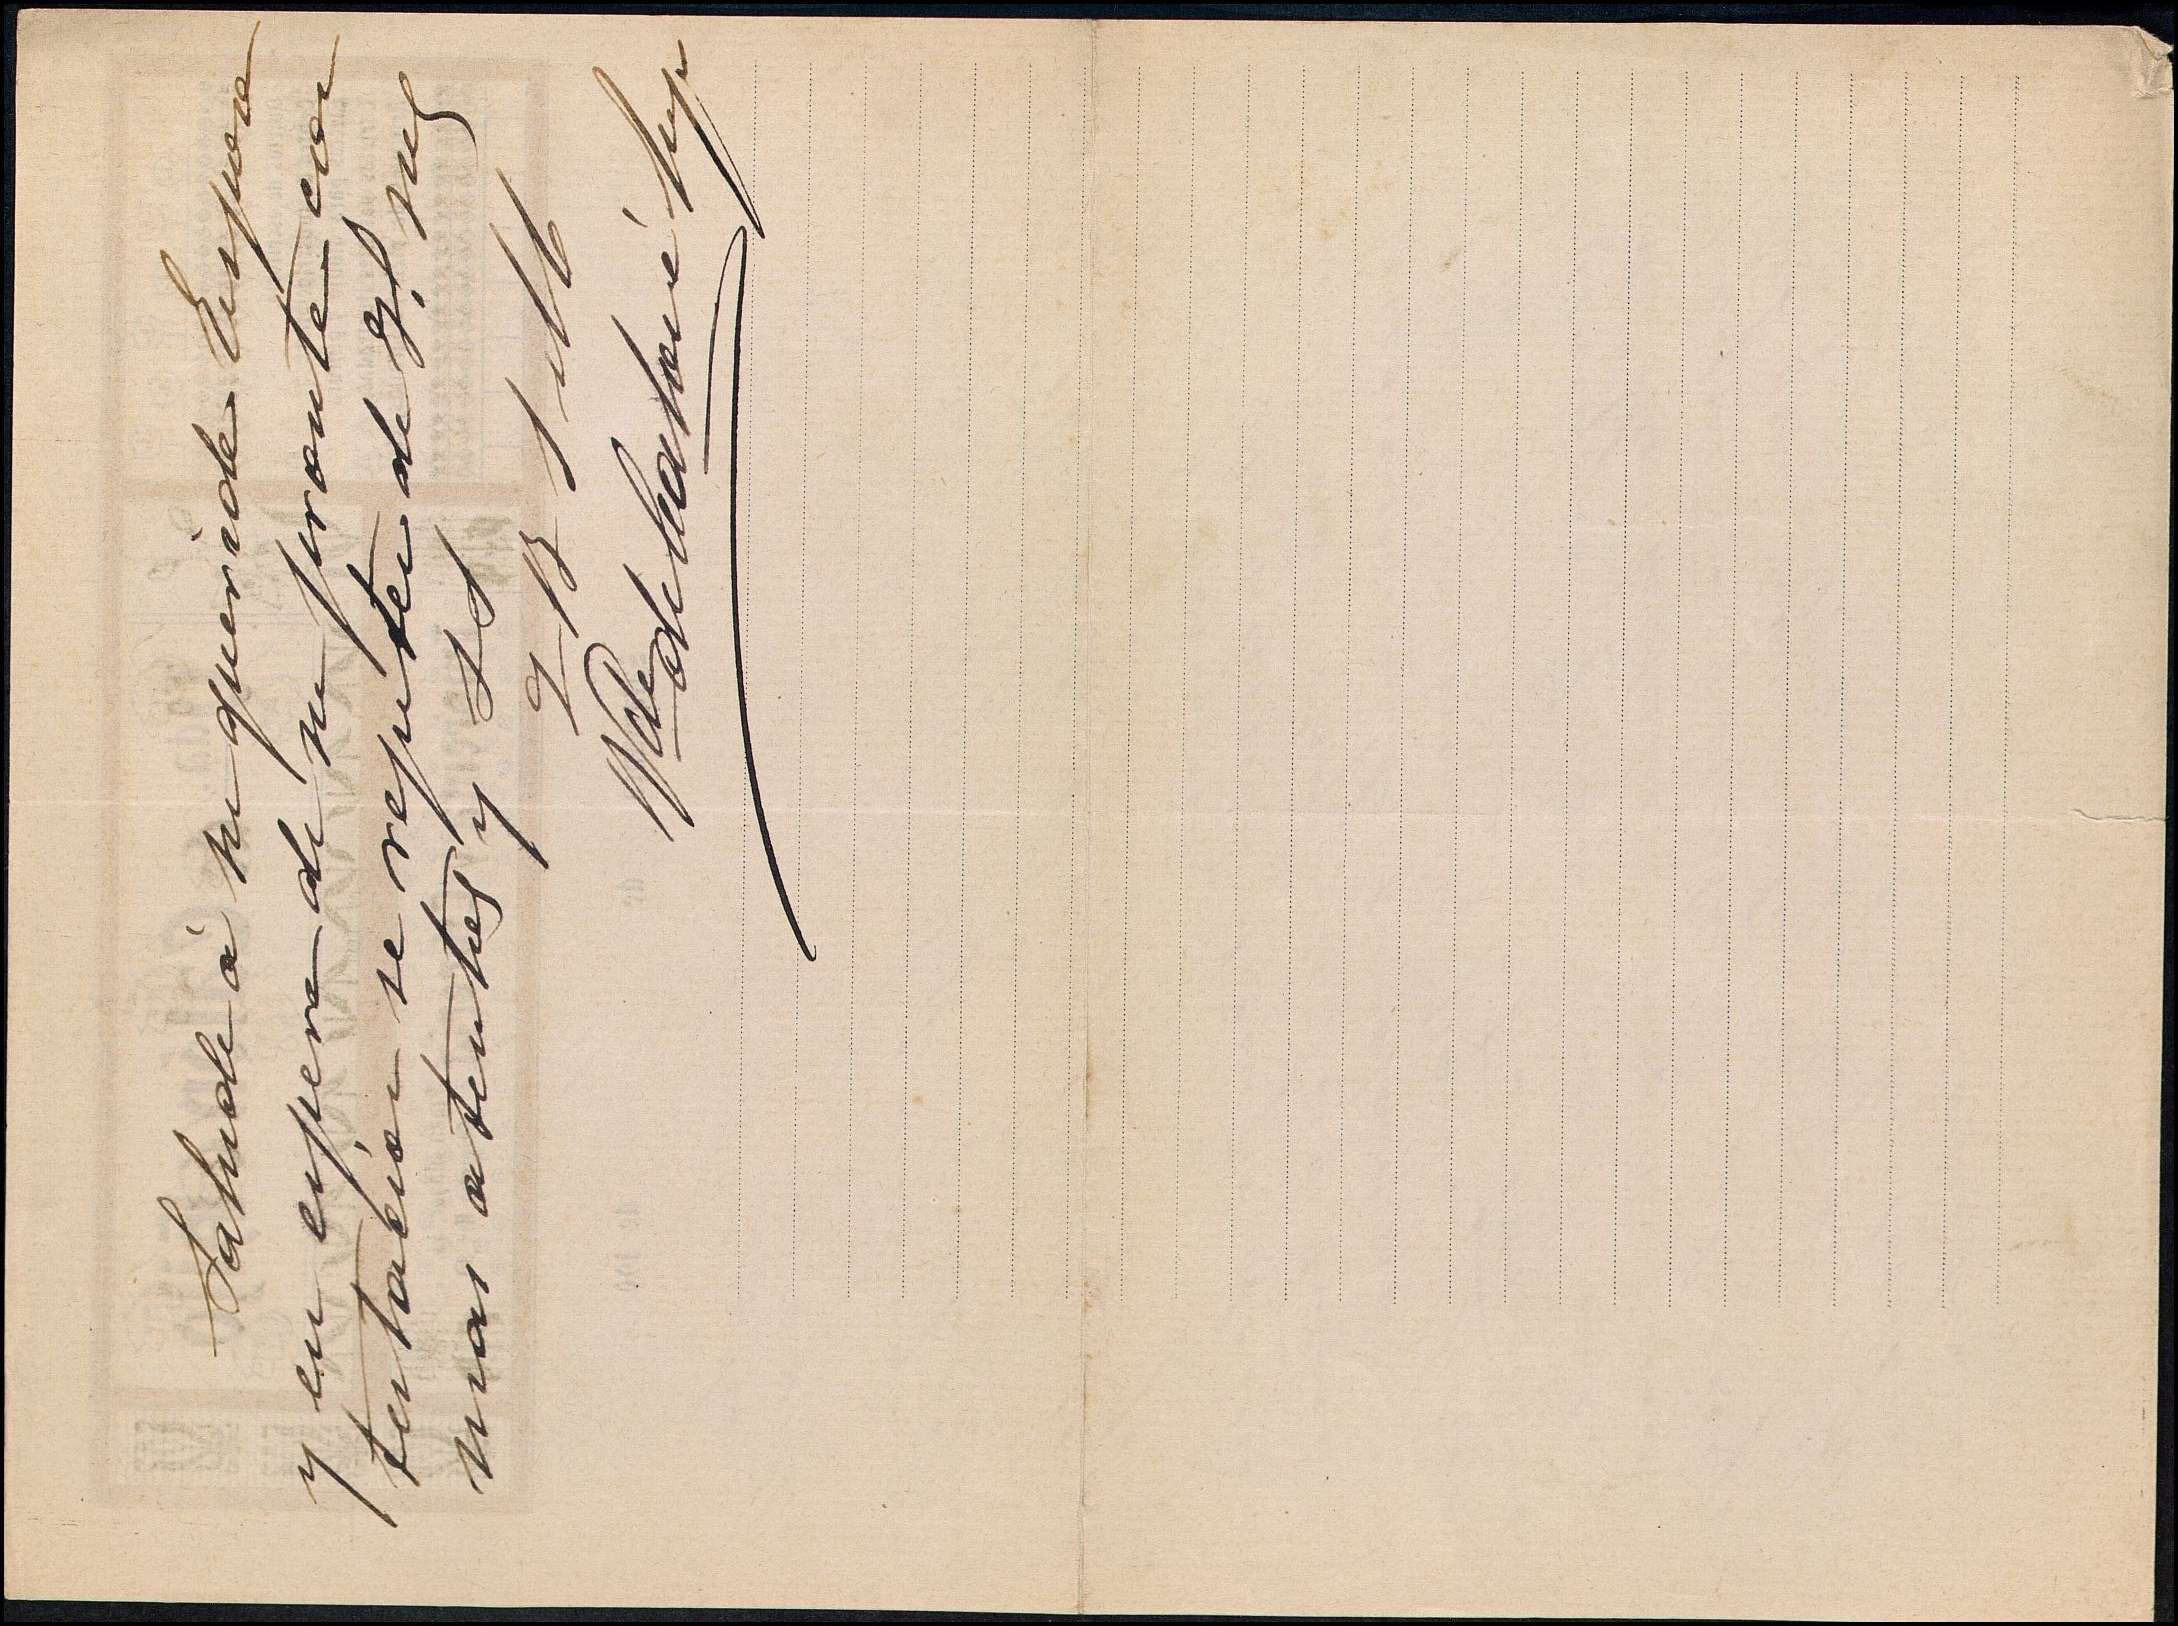 Salude á su querida Esposa
y en espera de su pronta con
testación se repiten de V. sus
mas atentos y SS
q B S M
Vda de Matoné hijo